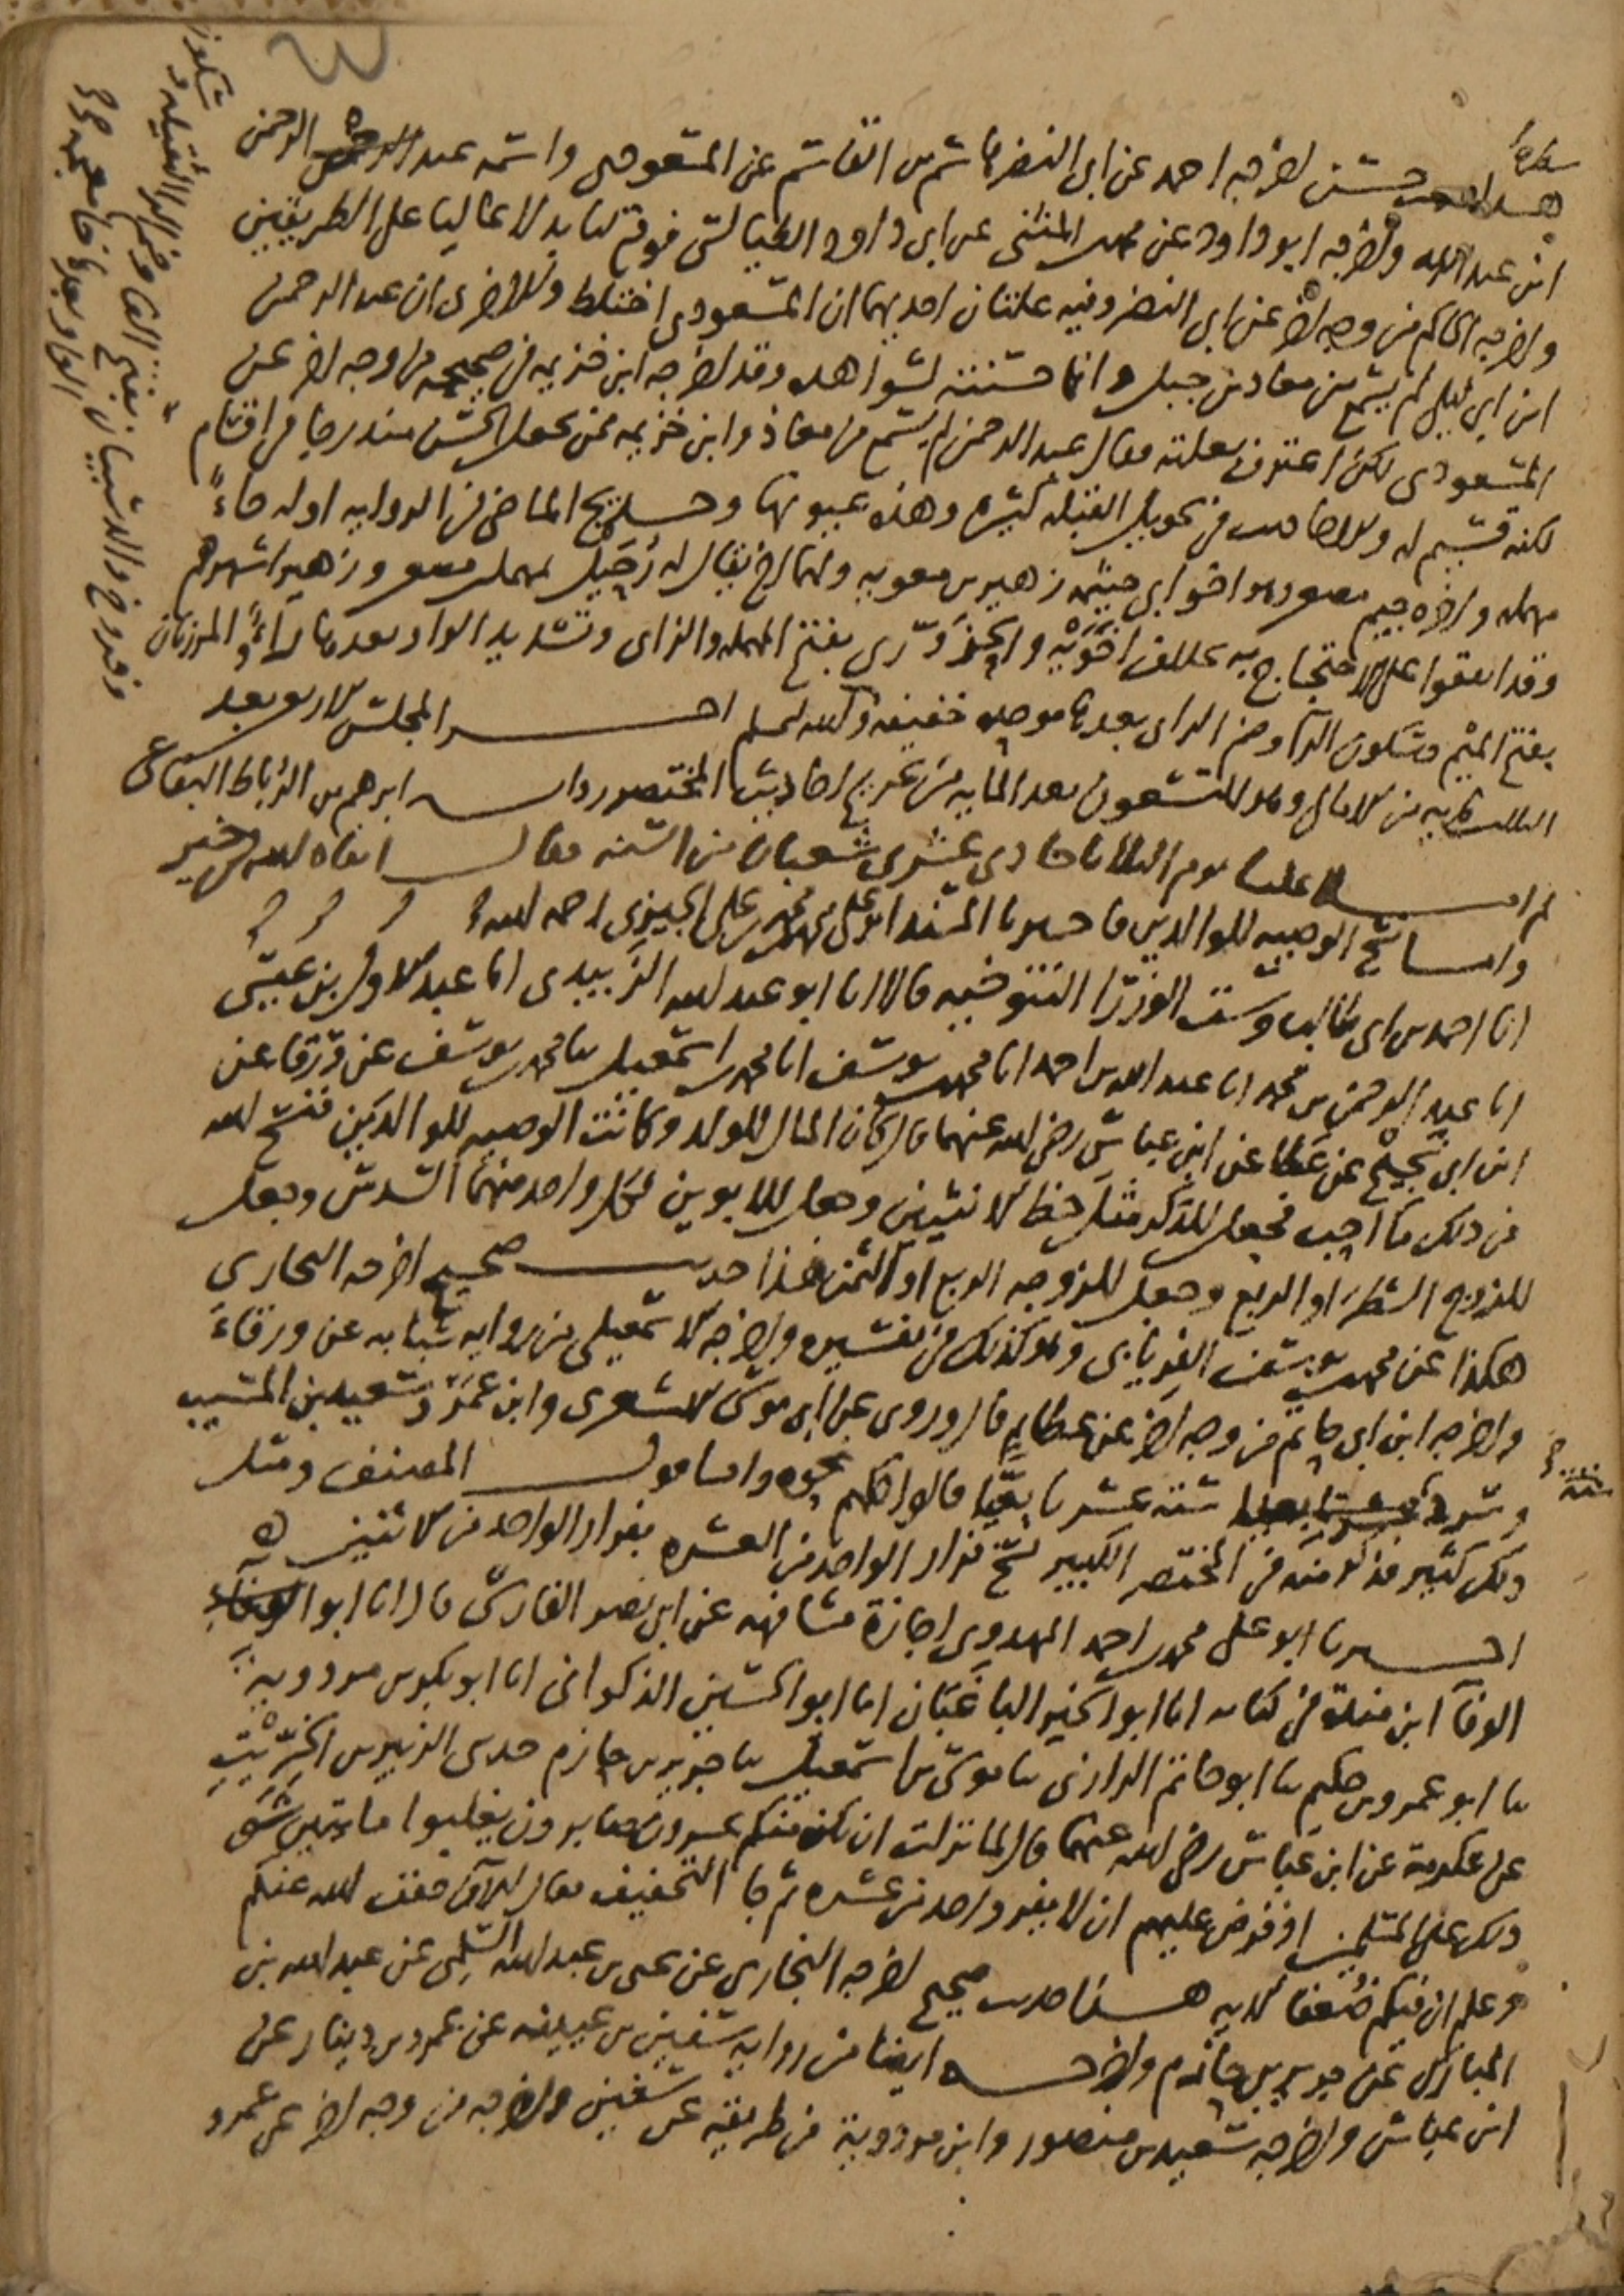 هذا حديث حسن اخرجه احمد عن ابي النضر هاشم بن القاسم عن المسعودي واسمه عبد الرحمن
ابن عبد الله واخرجه ابو داود عن محمد بن المثنى عن ابي داود الطيالسي فوقع لنا بدلا عاليا على الطريقين
واخرجه الحاكم من وجه اخر عن ابي النضر وفيه علتان احديهما ان المسعودي اختلط والاخرى ان عبد الرحمن
ابن ابي ليلى لم يسمع من معاذ بن جبل وانما حسنته لشواهده وقد اخرجه ابن خزيمه في صحيحه من وجه اخر عن
المسعودي لكن اعترف بعلته فقال عبد الرحمن لم يسمع من معاذ وابن خزيمه ممن يجعل الحسن مندرجا في اقسام
لكنه قسيم له والاحاديث في تحويل القبله كثيره وهذه عيونها وحديج الماضي في الروايه اوله حاء
مهمله واخره جيم مصغر وهو اخو ابي خيثمه زهير بن معويه ولهما اخ يقال له رحيل بمهمله مصغر وزهير اشهرهم
وقد اتفقوا على الاحتجاج به بخلاف اخويه والحزوري بفتح المهمله والزاي وتشديد الواو بعدها راء والمرزبان
بفتح الميم وسكون الرا وضم الزاي بعدها موحده خفيفه والله اعلم اخر المجلس الاربع بعد
الثلث مايه من الامالي وهو التسعون بعد المايه من تخريج احاديث المختصر روايه ابرهيم بن الرباط البقاعي
ثم املا علينا يوم الثلاثا حادي عشري شعبان من السنه فقال ابقاه الله في خير
واما نسخ الوصيه للوالدين فاخبرنا المسند ابو علي محمد بن محمد بن علي الجيزي رحمه الله
انا احمد بن ابي طالب وست الوزرا التنوخيه قالا انا ابو عبد الله الزبيدي انا عبد الاول بن عيسى
انا عبد الرحمن بن محمد انا عبد الله بن احمد انا محمد بن يوسف انا محمد بن اسمعيل ثنا محمد بن يوسف عن ورقا عن
ابن ابي نجيح عن عطا عن ابن عباس رضي الله عنهما قال كان المال للولد وكانت الوصيه للوالدين فنسخ الله
من ذلك ما احب فجعل للذكر مثل حظ الانثيين وجعل للابوين لكل واحد منهما السدس وجعل
للزوج الشطر او الربع وجعل للزوجه الربع او الثمن هذا حديث صحيح اخرجه البخاري
هكذا عن محمد بن يوسف الفريابي وهو كذلك في تفسيره واخرجه الاسمعيلي من روايه شبابه عن ورقاء
واخرجه ابن ابي حاتم من وجه اخر عن عطا قال وروي عن ابي موسى الاشعري وابن عمر وسعيد بن المسيب
وسرد سته عشر تابعيا قالوا كلهم نحوه واما قول المصنف ومثل
ذلك كثير فذكر منه في المختصر الكبير نسخ فرار الواحد من العشره بفرار الواحد من الاثنين
اخبرنا ابو علي محمد بن احمد المهدوي اجازة مشافهه عن ابي نصر الفارسي قال انا ابو
الوفا ابن منده في كتابه انا ابو الخير الباغبان انا ابو الحسين الذكواني انا ابو بكر بن مردويه
ثنا ابو عمرو بن حكيم ثنا ابو حاتم الرازي ثنا موسى بن اسمعيل ثنا جرير بن حازم حدثني الزبير بن الخريت
عن عكرمة عن ابن عباس رضي الله عنهما قال لما نزلت ان يكن منكم عشرون صابرون يغلبوا مايتين شق
ذلك على المسلمين اذ فرض عليهم ان لا يفر واحد من عشره ثم جا التخفيف فقال الآن خفف الله عنكم
وعلم ان فيكم ضعفا الايه هذا حديث صحيح اخرجه البخاري عن يحيى بن عبد الله السلمي عن عبد الله بن
المبارك عن جرير بن حازم واخرجه ايضا من روايه سفين بن عيينه عن عمرو بن دينار عن
ابن عباس واخرجه سعيد بن منصور وابن مردويه من طريقه عن سفين واخرجه من وجه اخر عن عمرو